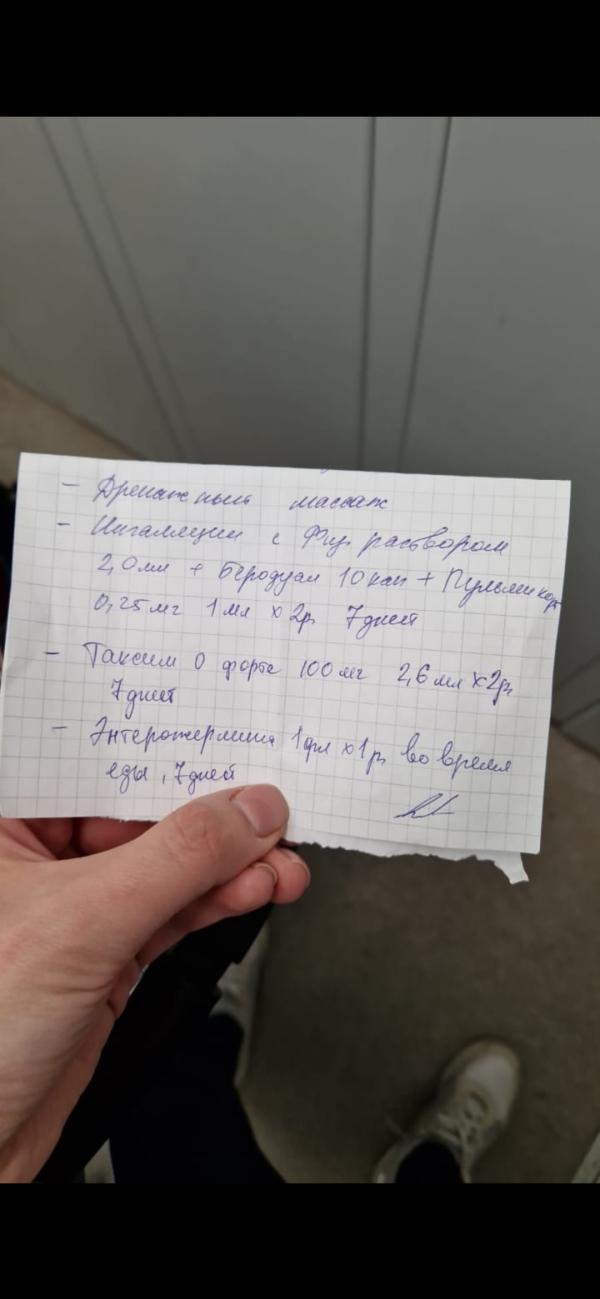 - Дренажный массаж
- Ингаляции с Физ. раствором
2,0 мл + Беродуал 10 кап + Пульмикорт
0,25 мг 1 мл x 2р, 7 дней
- Таксим О форте 100 мг 2,6 мл x 2р,
7 дней
- Энтерожермина 1 фл x 1 р, во время
еды, 7 дней